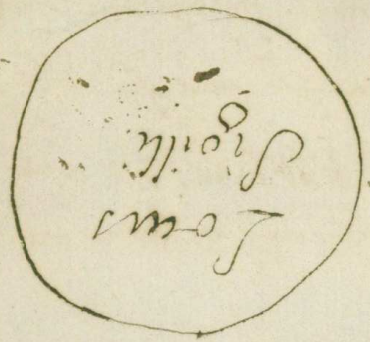 Locus
Sigilli